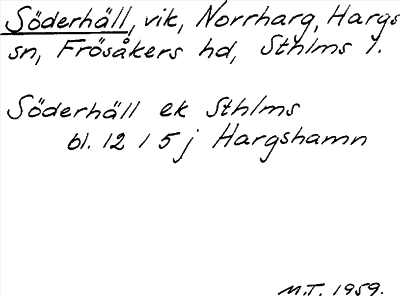 Söderhäll, vik, Norrharg, Hargs
sn, Frösåkers hd, Sthlms l.
Söderhäll ek Sthlms
bl. 12 I 5 j Hargshamn
M.T. 1959.